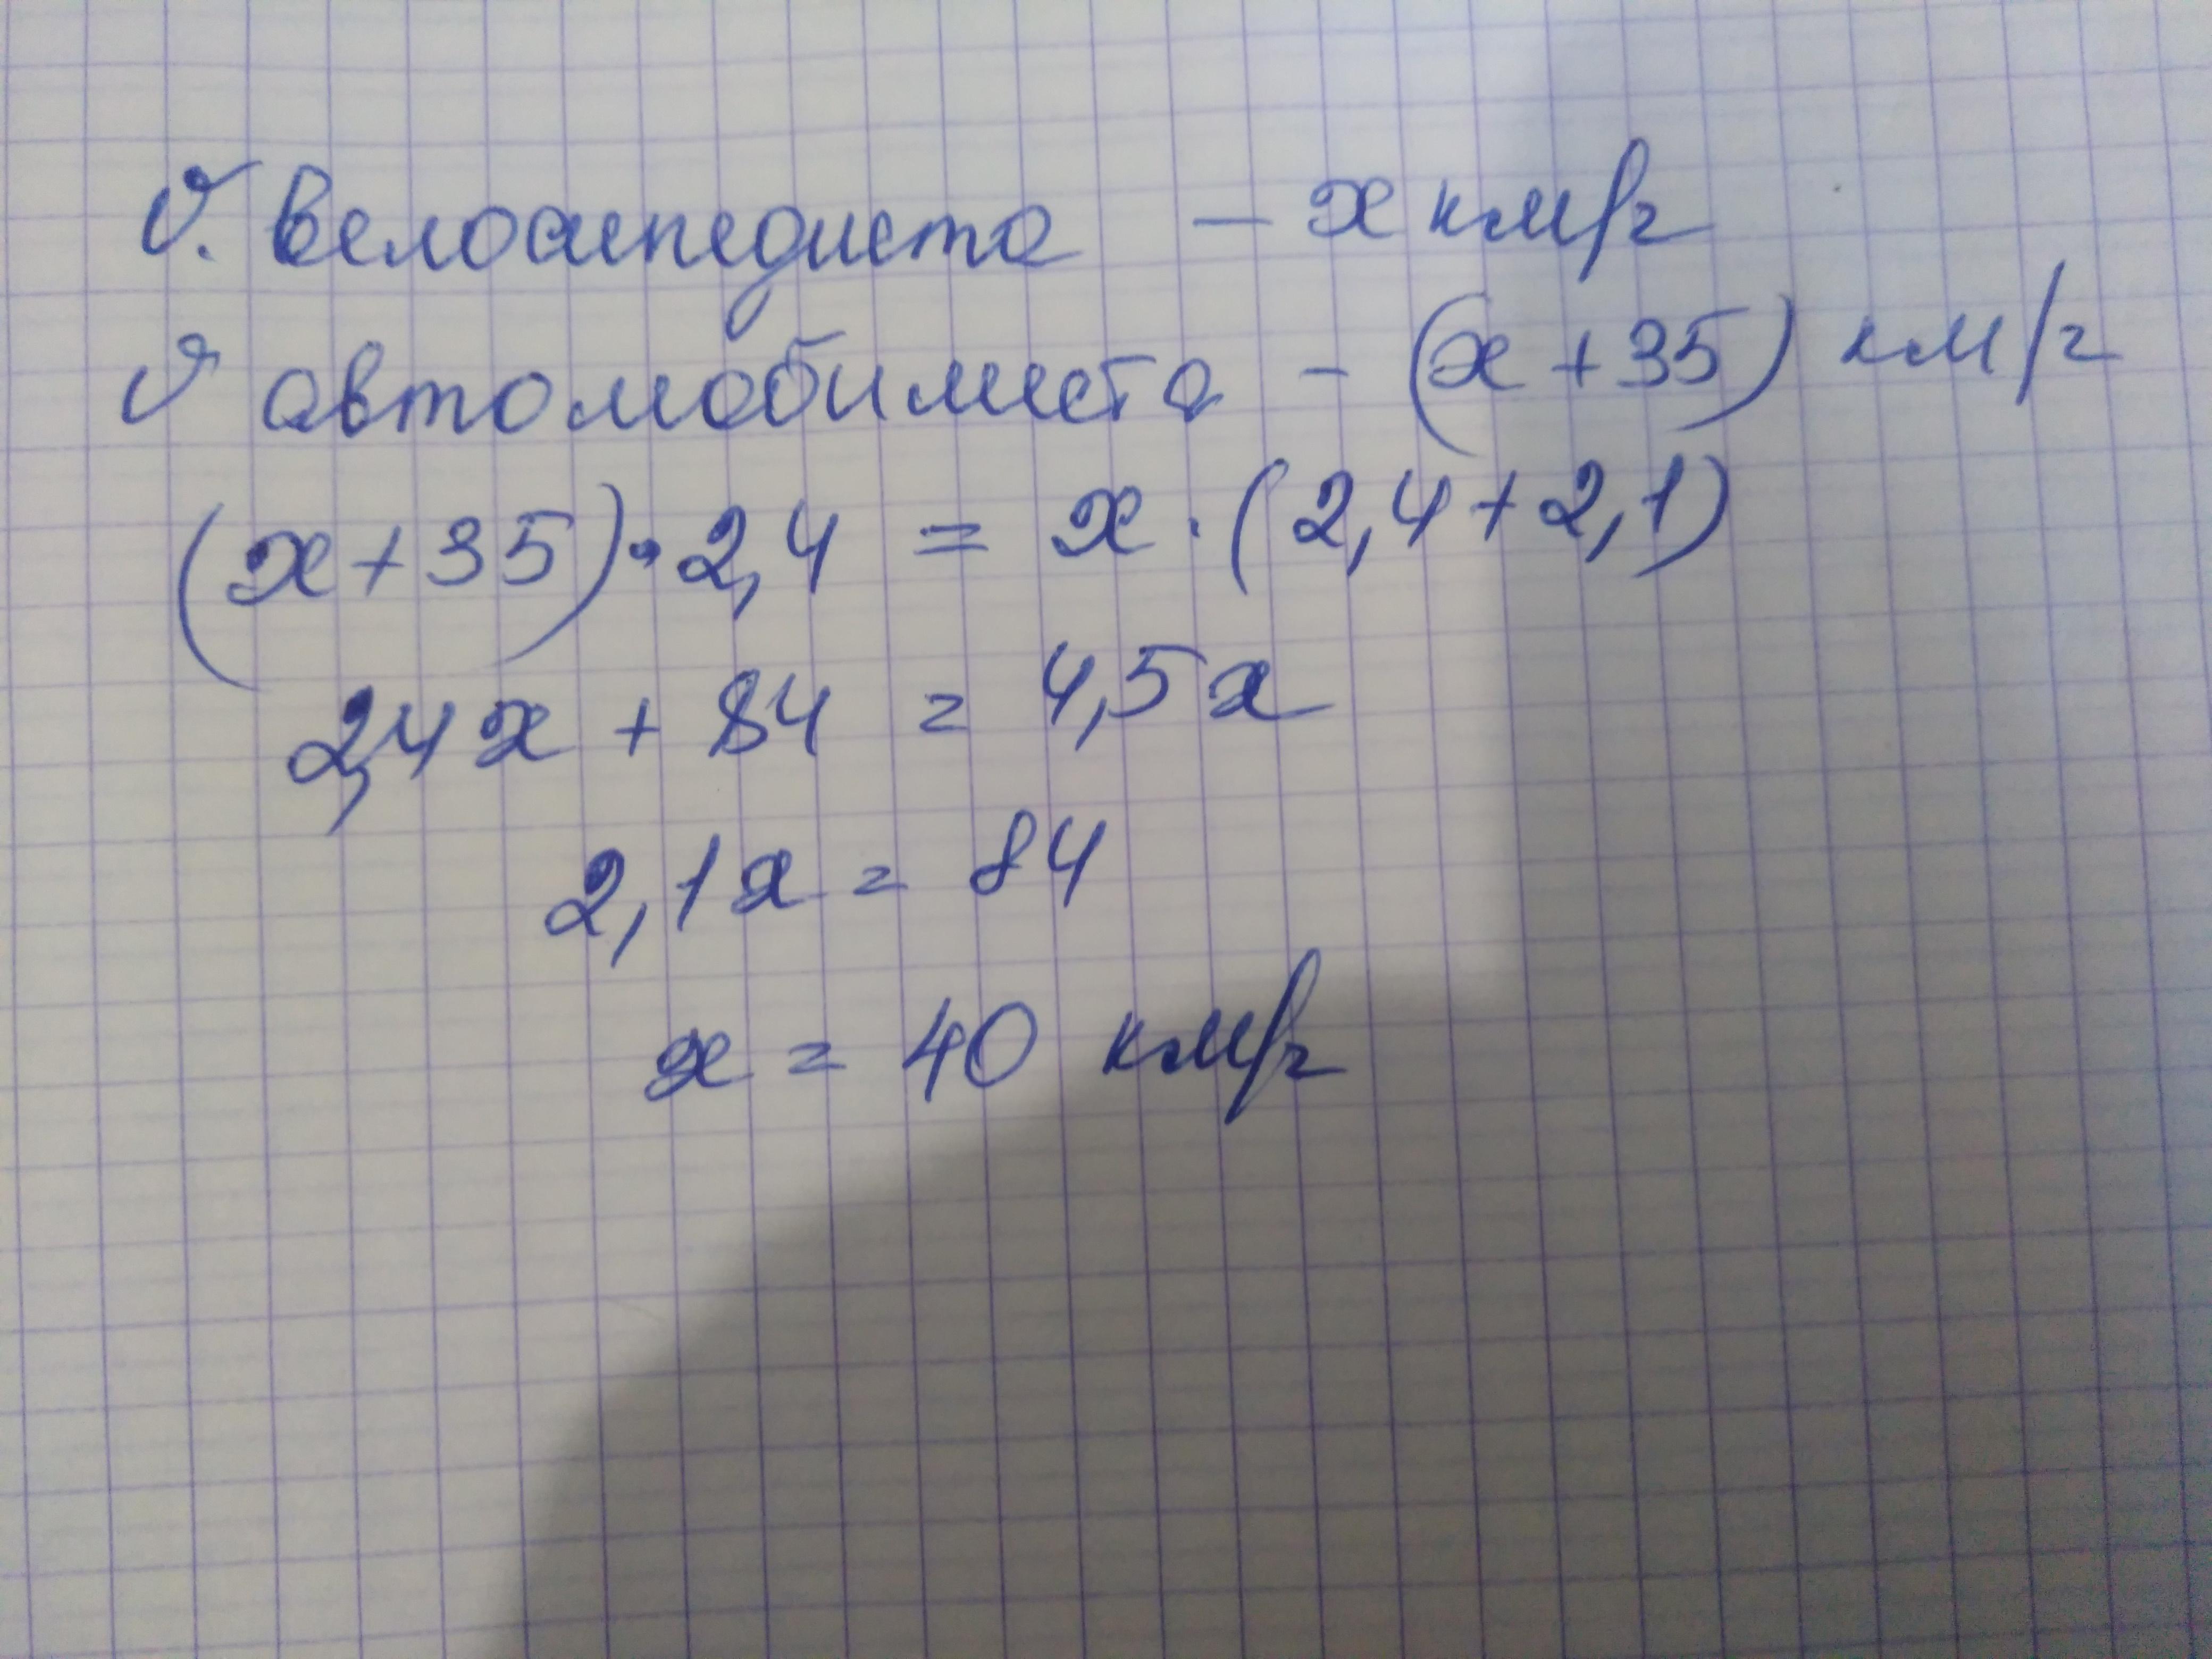 v. велосипедиста – x км/г
v автомобилиста – (x + 35) км/г
(x + 35) · 2,4 = x · (2,4 + 2,1)
2,4x + 84 = 4,5x
2,1x = 84
x = 40 км/г